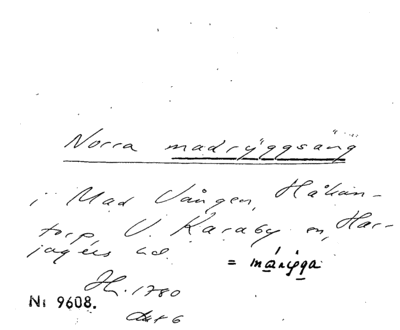 Norra madrÿggsäng
i Mad Vången, Håkan-
torp V. Karaby sn, Har-
jagers hd
= màrỳga
Hs. 1780
akt 6
Ni 9608.